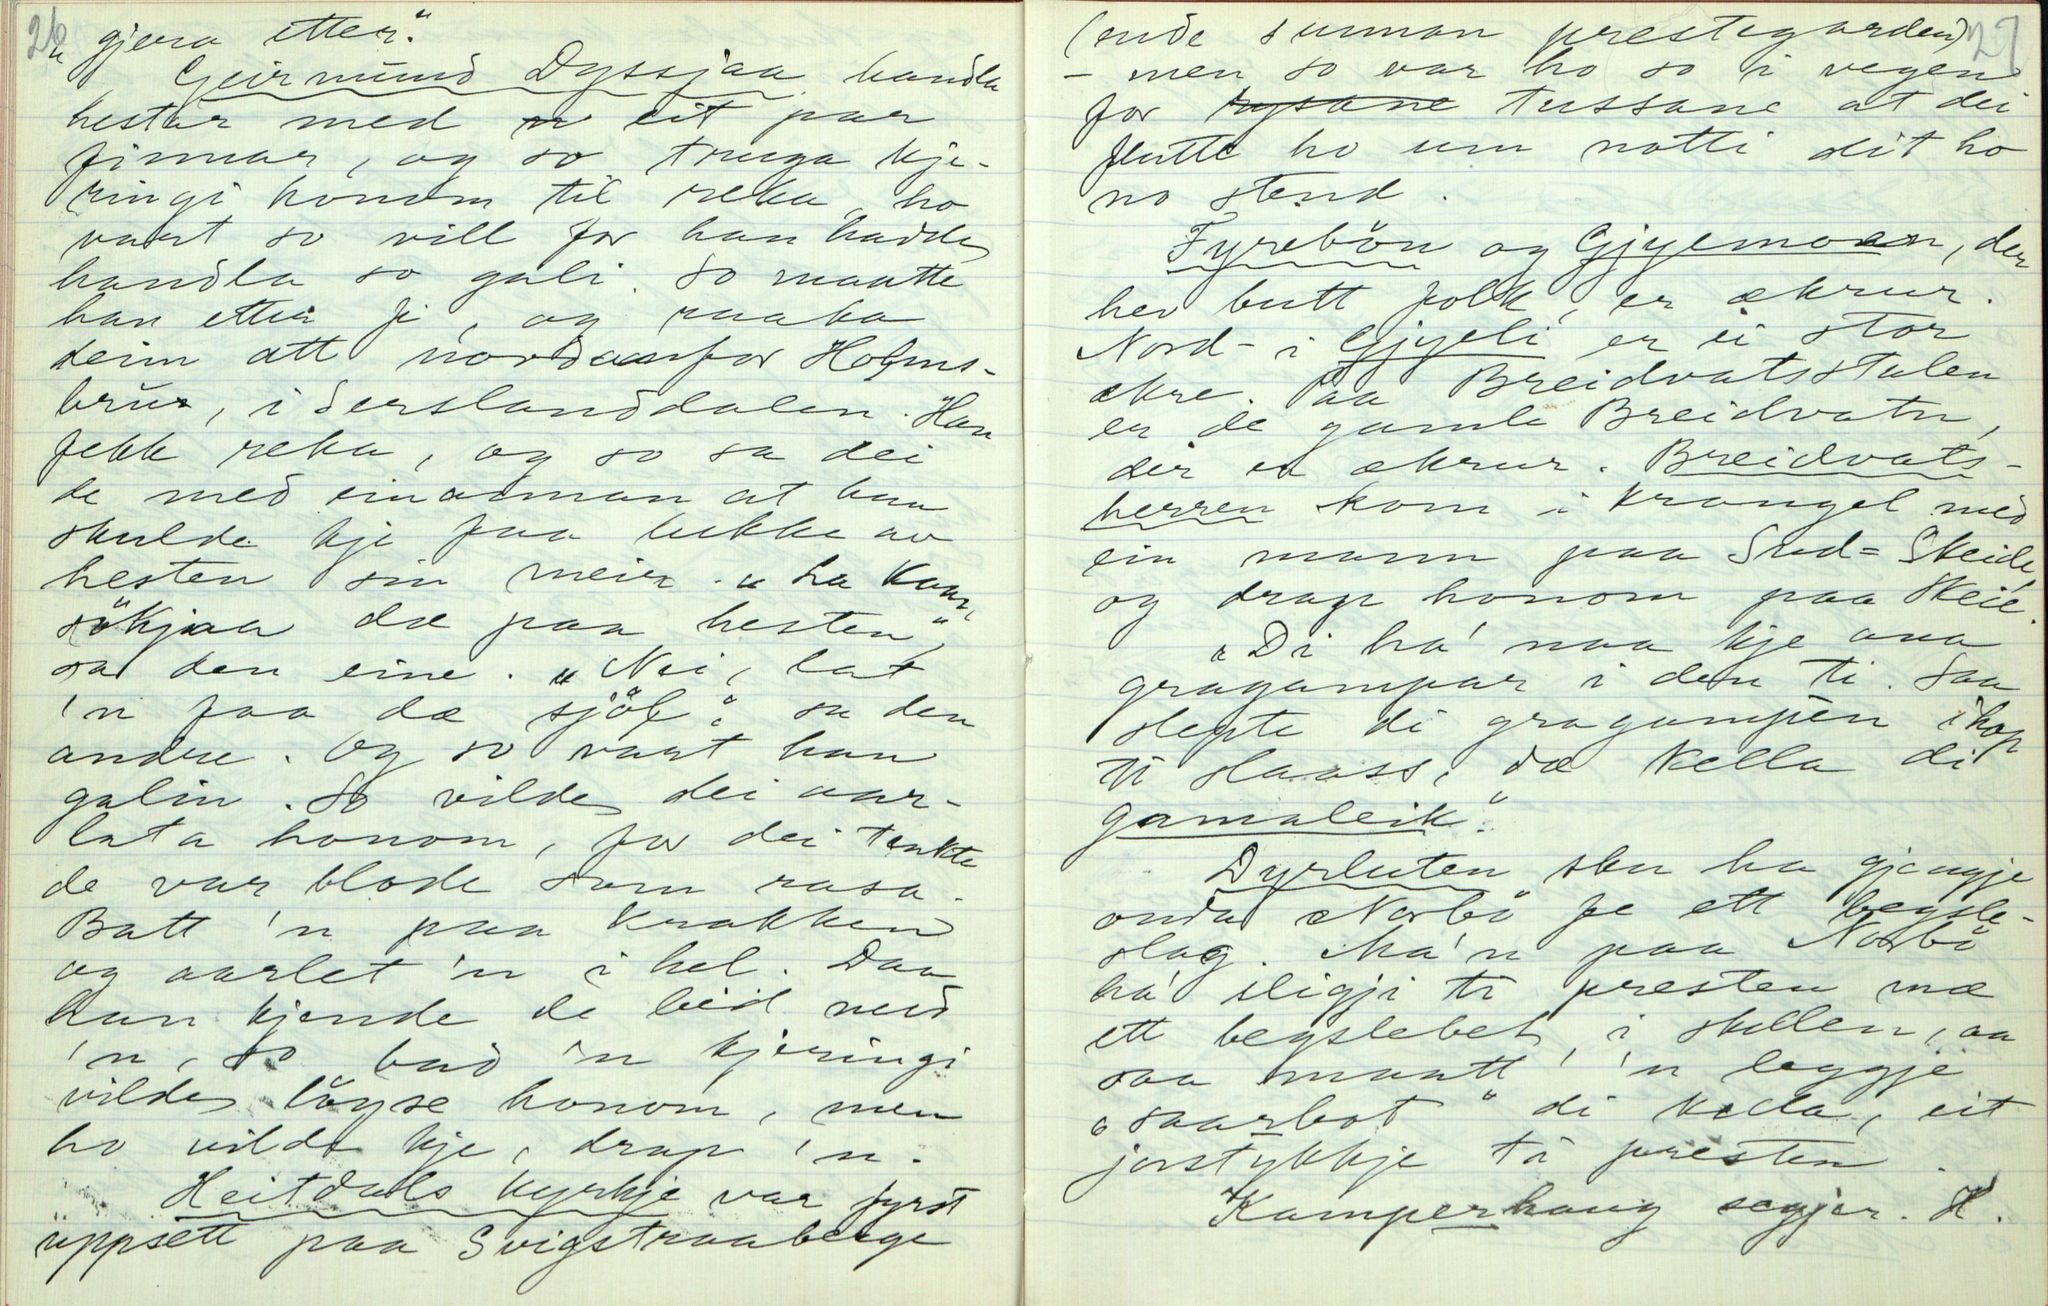 26
"gjera etter."
Geirmund Dyssjaa handla
hestar med eit par
finnar, og so truga kje-
ringi honom til reka, ho
vart so vill for han hadde
handla so gali. So maatte
han etter fi, og raaka
deim att nordanfor Holms-
brui, i Serslanddalen. Han
fekk reka, og so sa dei
de med einannan at han
skulde kje faa lukke av
hesten sin meir. "La kaar,
sökjaa dæ paa hesten",
sa den eine. "Nei, lat
'n faa dæ sjöl." sa den
andre. Og so vart han
galin. So vilde dei aar-
lata honom, for dei tenkte
de var blode som rasa.
Batt 'n paa krakken
og aarlet 'n i hel. Daa
han kjende de leid med
'n, so bad 'n kjeringi
vilde löyse honom, men
ho vilde kje, drap 'n.
Heitdals kyrkje var fyrst
uppsett paa Svigstraaberge
27
(nede sunnan prestegarden)
- men so var ho so i vegen
for tussane at dei
flutte ho um natti dit ho
no stend.
Fyrebön og Gjyemoen, der
hev butt folk, er ækrur.
Nord- i Gjyeli er ei stor
ækre. Paa Breidvatsstulen
er de gamle Breidvatn,
der er ækrur. Breidvats-
herren kom i krangel med
ein mann paa Sud-Skeide
og drap honom paa Skeie.
"Di ha' naa kje ana
gragampar i den ti. Saa
slepte di gragampen ihop
ti slaass, dæ kella di
gamaleik".
Dyrluten sku ha gjengje
onda Norbö fe ett begsle-
slag. Ma'n paa Norbö
ha' sligji ti presten mæ
ett begslebet i skallen, aa
saa maatt 'n leggje
"saarbot" di kella, eit
jorstykkje ti presten.
Kamperhaug segjer. H.